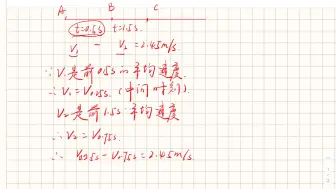 A B C
t=0.5s t=1.5s
V₁ - V₂ = 2.45m/s
∵ V₁是前0.5s的平均速度
∴ V₁=V0.25s (中间时刻)
V₂是前1.5s平均速度
∴ V₂=V0.75s
∴ V0.25s - V0.75s = 2.45m/s